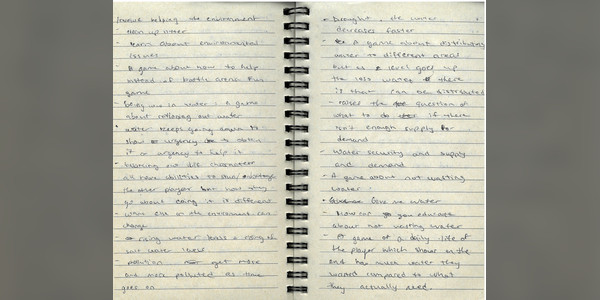 helping the environment
- clean up litter
- learn about environmental
issues
- A game about how to help
instead of battle arena this
game
- being in water : A game
about rationing out water
water keeps going down to
show urgency to
it or urgency to help it
-
all have abilities to
the other player but how they
go about doing it is different
- what else in the environment can
change
rising water levels = rising of
water levels
- pollution get more
and more polluted as time
goes on
- Drought, the water
decreases faster
- A game about distributing
water to different areas
but as a level goes up
the less water there
is that can be distributed
- raises the question of
what to do if there
isn't enough supply for
demand
- Water security and supply
and demand
- A game about not wasting
water
- Give me water
- How can you educate
about not wasting water
- A game of a daily life of
the player which shows in the
end how much water they
wasted compared to what
they actually need.